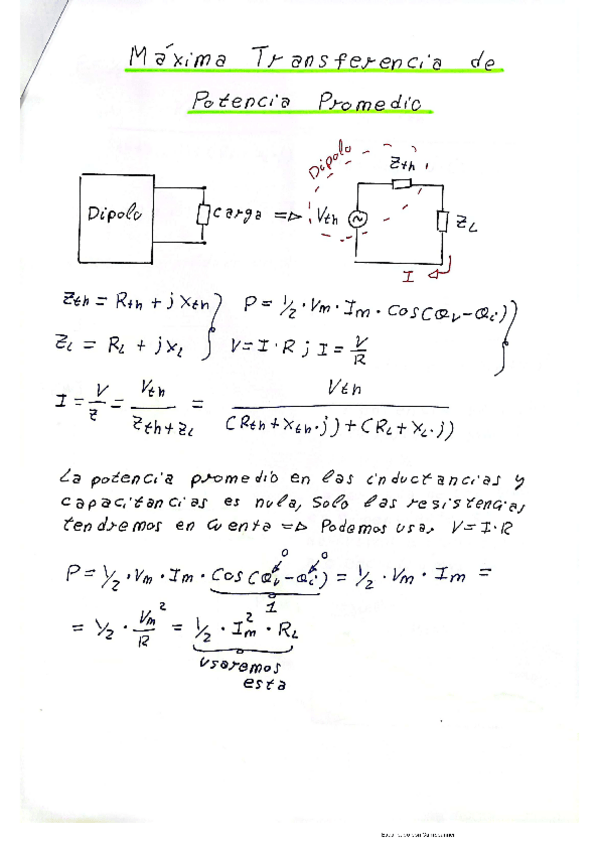 Máxima Transferencia de
Potencia Promedio
Dipolo
carga => Vth
Dipolo
Zth
ZL
I
Zth = Rth + j Xth
P = 1/2 · Vm · Im · cos(θv - θi)
ZL = RL + jXL
V = I · R ; I = V/R
I = V/Z = Vth/(Zth + ZL) = Vth/((Rth + Xth·j) + (RL + XL·j))
La potencia promedio en las inductancias y
capacitancias es nula, Solo las resistencias
tendremos en cuenta => Podemos usar V = I·R
P = 1/2 · Vm · Im · cos(θv - θi) = 1/2 · Vm · Im =
0 0
1
= 1/2 · Vm²/R = 1/2 · Im² · RL
usaremos
esta